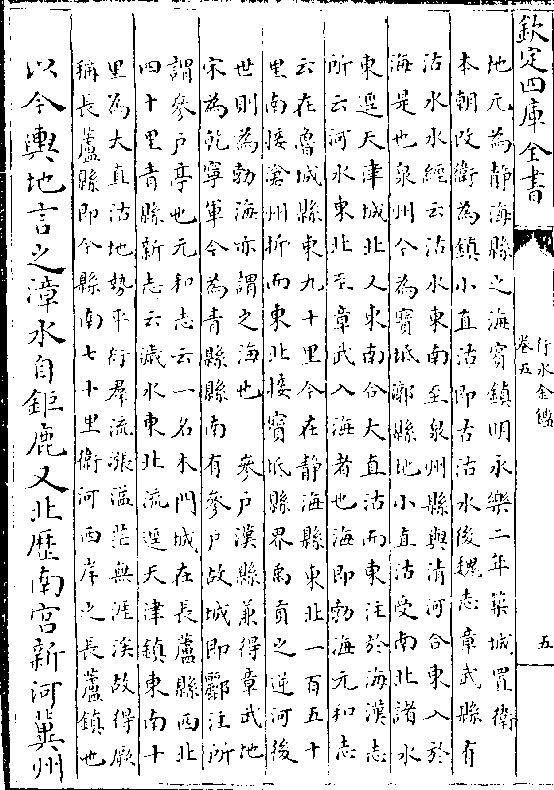 欽定四庫全書
行水金鑑
卷五
五
地元為靜海縣之海賓鎮明永樂二年築城置衛
本朝改衛為鎮小直沽即古沽水後魏志章武縣有
沽水水經云沽水東南至泉州縣與清河合東入於
海是也泉州今為寶坻漷縣地小直沽受南北諸水
東逕天津城北又東南合大直沽而東注於海漢志
所云河水東北至章武入海者也海即勃海元和志
云在魯城縣東九十里今在靜海縣東北一百五十
里南接滄州折而東北接寶坻縣界禹貢之逆河後
世則為勃海亦謂之海也 參户漢縣兼得章武地
宋為乾寧軍今為青縣縣南有參户故城即酈注所
謂參户亭也元和志云一名木門城在長蘆縣西北
四十里青縣新志云濊水東北流逕天津鎮東南十
里為大直沽地勢平衍羣流漲溢茫無涯涘故得厥
稱長蘆縣即今縣南七十里衛河西岸之長蘆鎮也
以今輿地言之漳水自鉅鹿又北歷南宫新河冀州